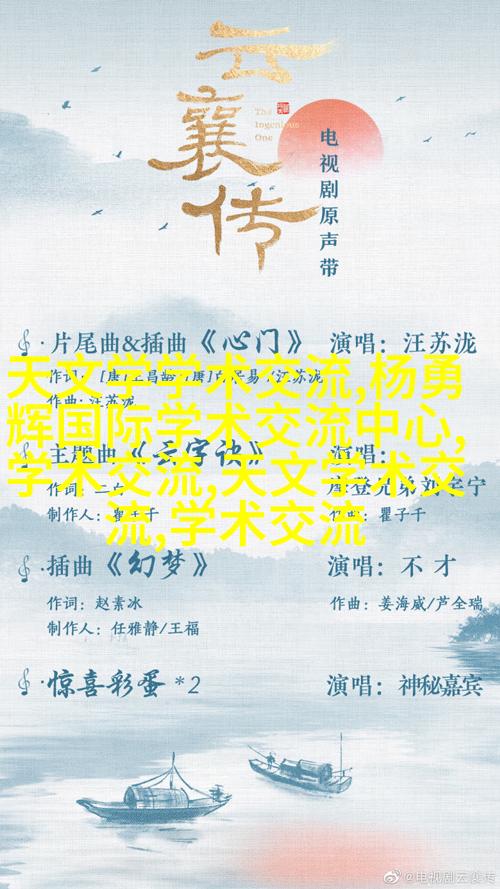 云襄传
The
Ingenious
One
电视剧原声带
片尾曲&插曲《心门》 演唱：汪苏泷
天文学学术交流,杨勇
辉国际学术交流中心,
学术交流,天文学术交
流,学术交流
作曲：汪苏泷
主题曲《云字诀》 演唱：
制作人：瞿子千 作曲：瞿子千
插曲《幻梦》 演唱：不才
作词：赵素冰 作曲：姜海威/芦全瑞
制作人：任雅静/王福
惊喜彩蛋 *2 演唱：神秘嘉宾
@电视剧云襄传